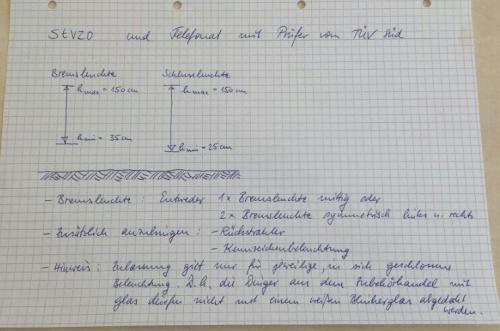 StVZO und Telefonat mit Prüfer vom TÜV Süd
Bremsleuchte Schlussleuchte
hmax = 150cm hmax = 150cm
hmin = 35cm
hmin = 25cm
- Bremsleuchte : Entweder 1x Bremsleuchte mittig oder
2x Bremsleuchte symmetrisch links u. rechts
- Zusätzlich anzubringen : - Rückstrahler
- Kennzeichenbeleuchtung
- Hinweis : Zulassung gilt nur für jeweilige, in sich geschlossene
Beleuchtung. D.h. die Dinger aus dem Zubehörhandel mit
Glas dürfen nicht mit einem weißen Blinkerglas abgedeckt
werden.